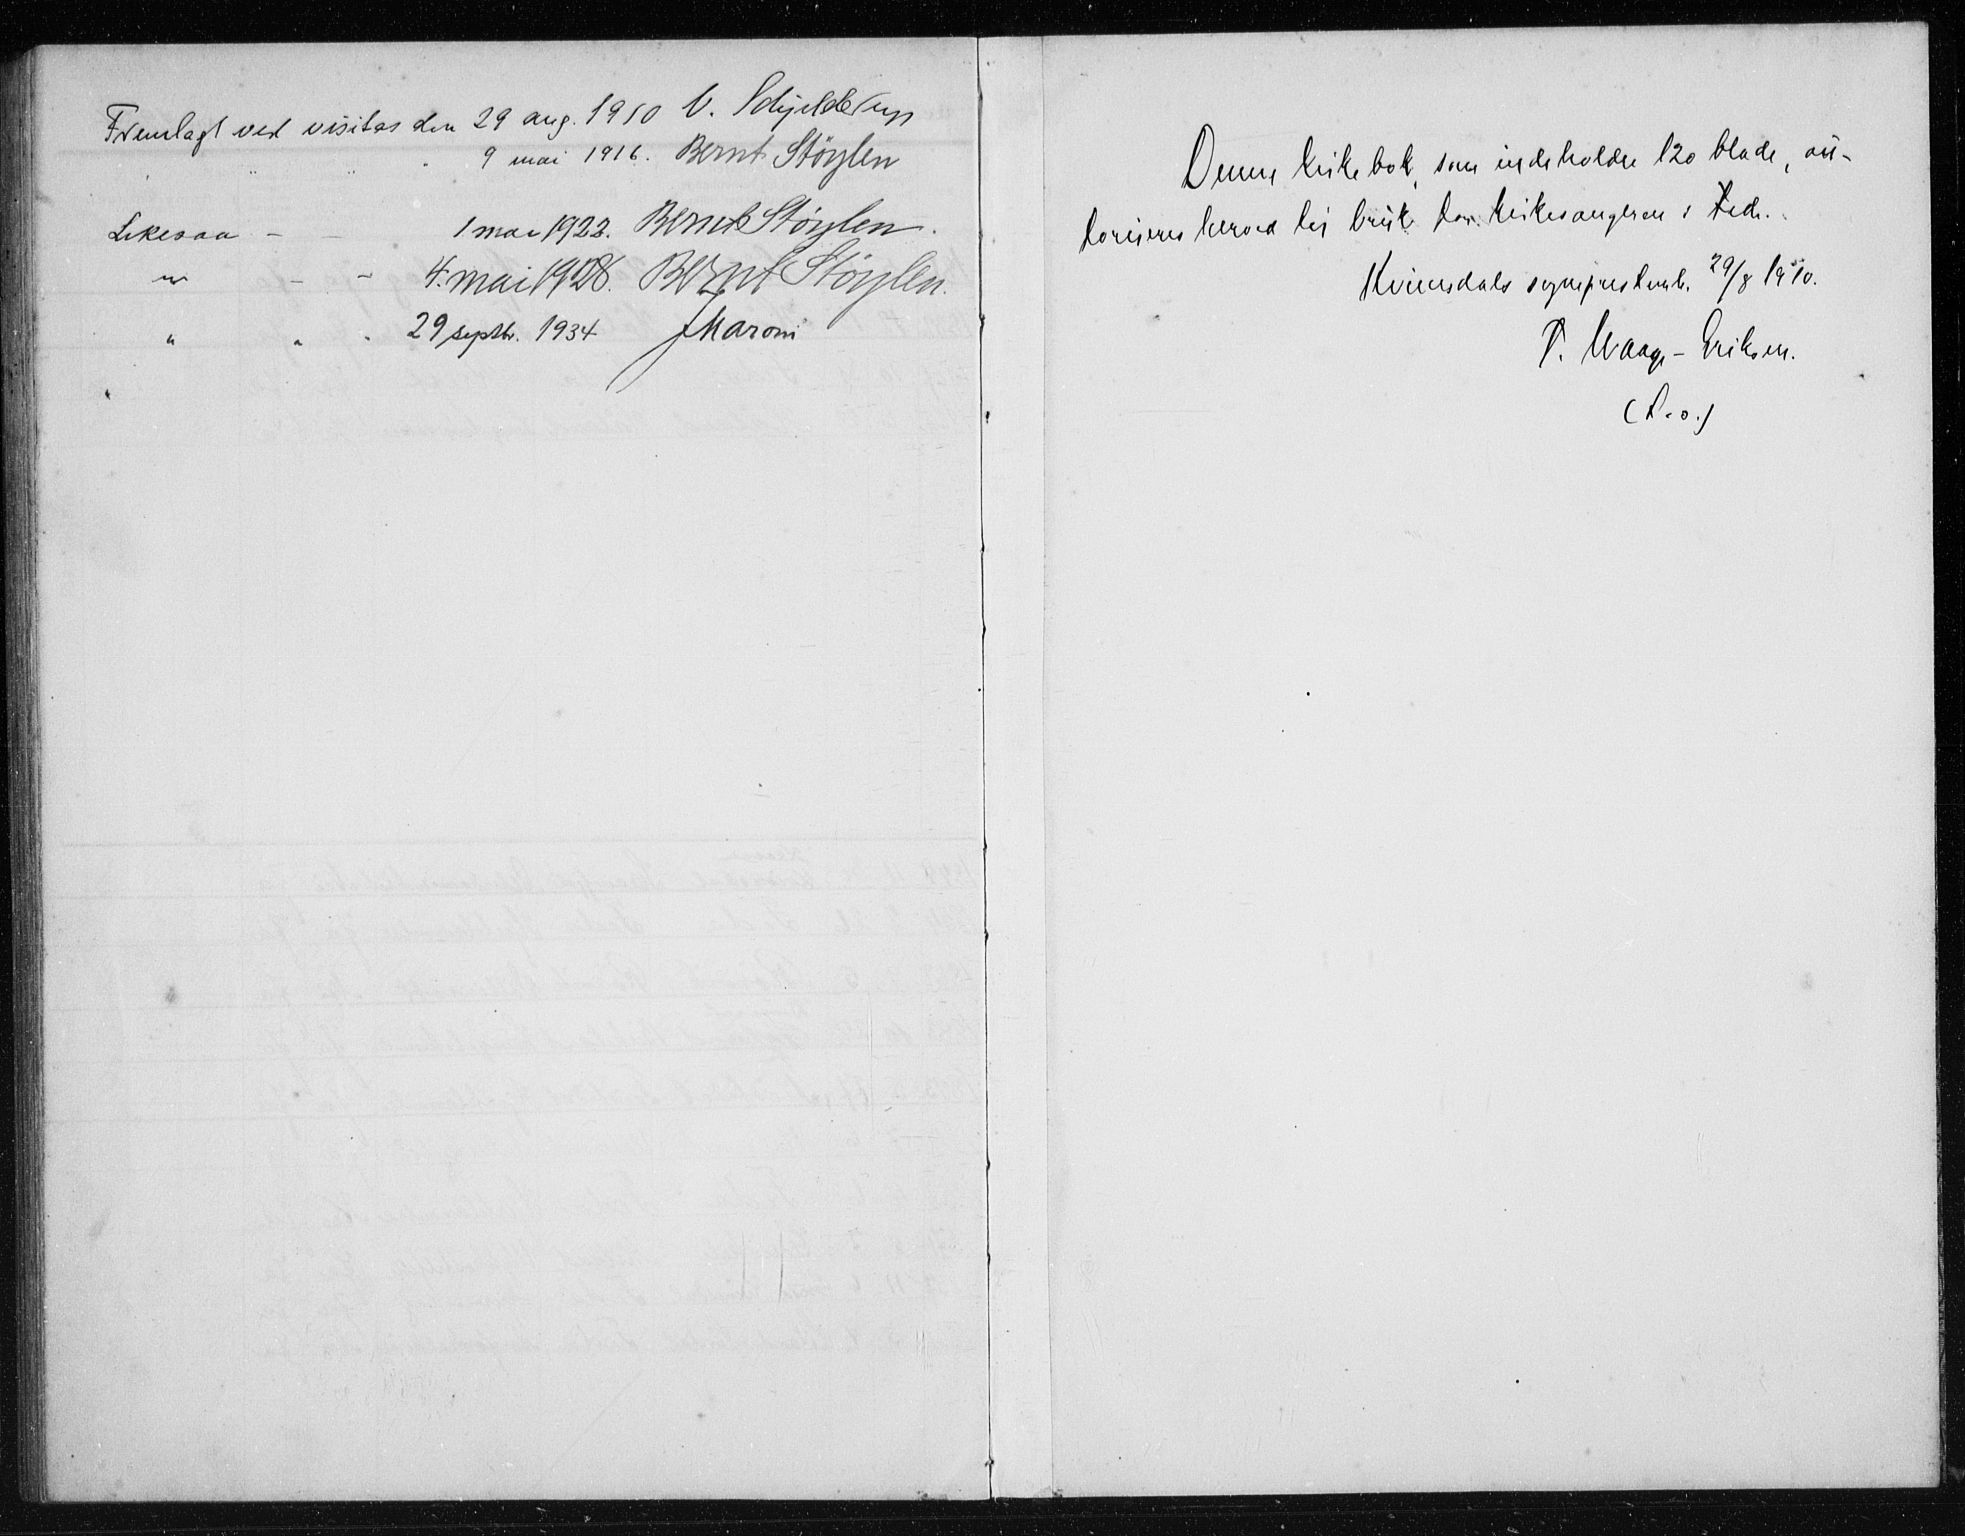 Fremlagt ved visitas den 29 aug. 1910 V. Schjelderup
" " " . 9 mai 1916. Bernt Støylen
Likesaa - - 1 mai 1922. Bernt Støylen.
" - - 4. mai 1928. Bernt Støylen.
" " " 29 septbr. 1934 J Maroni
Denne kirkebok, som indeholder 120 blade, au-
toriseres herved til bruk for kirkesangeren i Feda.
Kvinesdals sogneprestemb. 29/8 1910.
P. Waage-Eriksen.